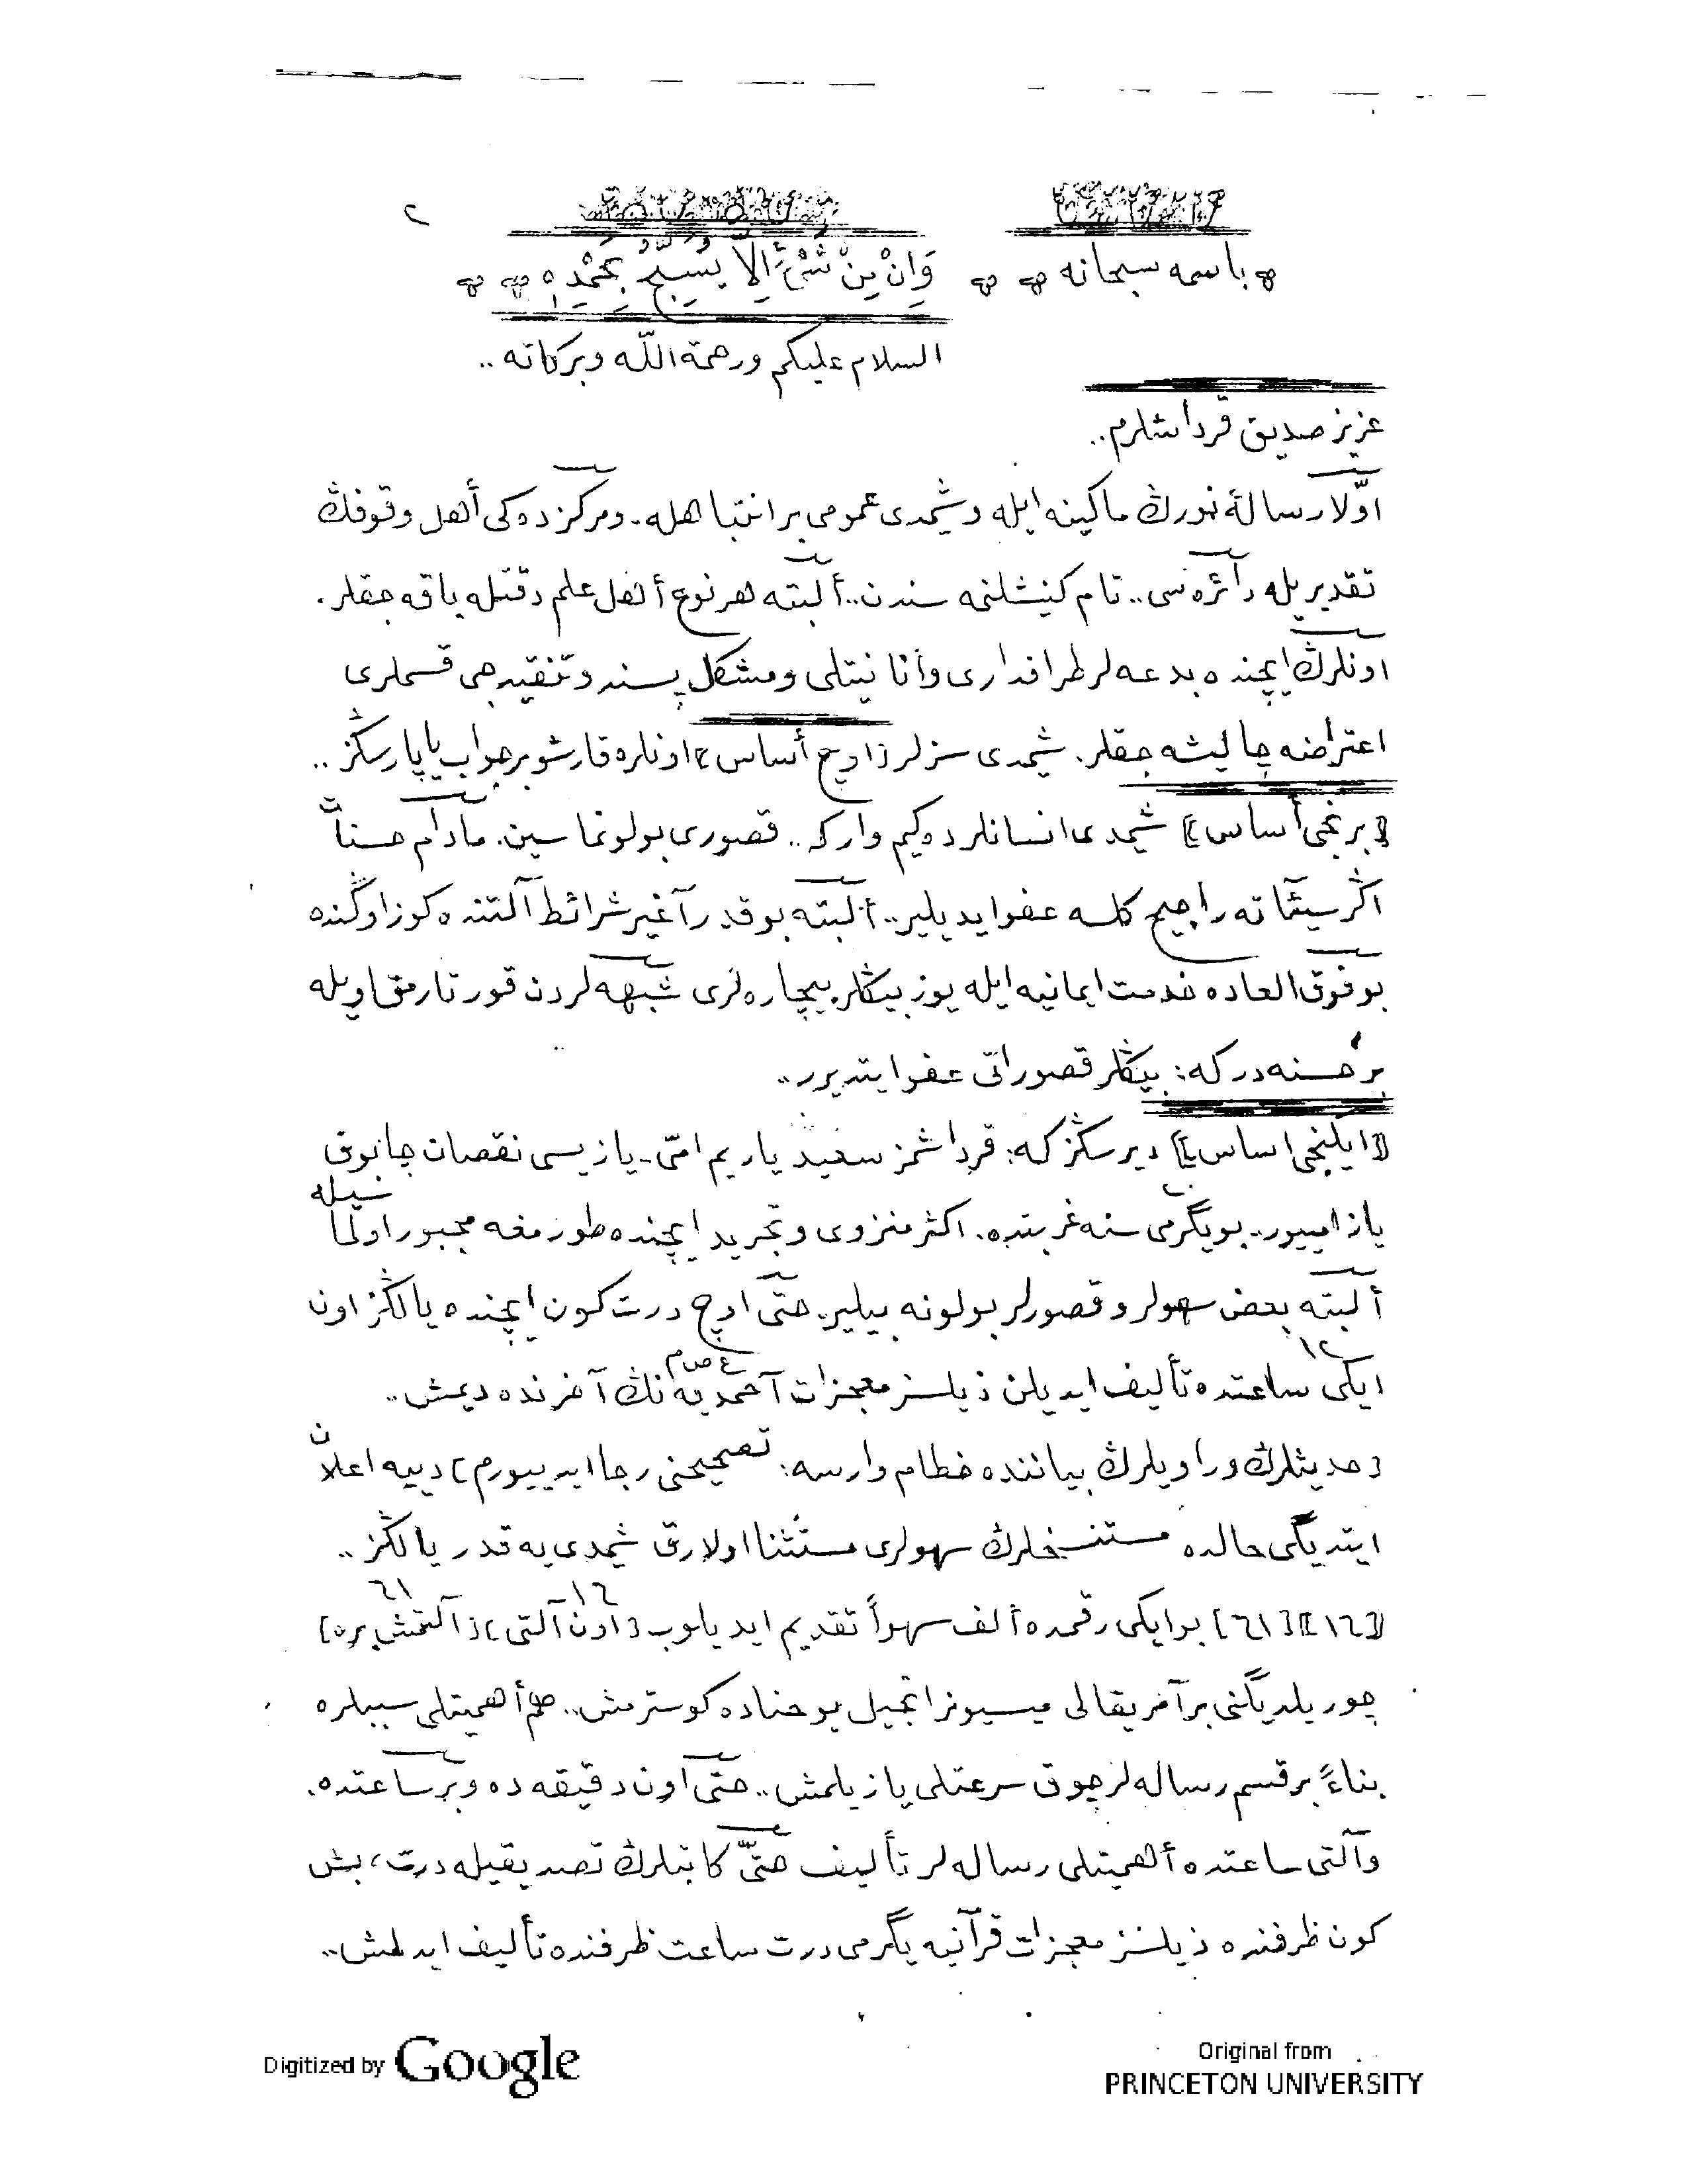 ٢
باسمه سبحانه وَاِنْ مِنْ شَیْءٍ اِلَّا یُسَبِّحُ بِحَمْدِهِ
السلام علیكم ورحمة اللّه وبركاته ..
عزیز صدیق قرداشلرم..
اوّلا رسالۀ نورڭ ماكینه ایله وشیمدی عمومی بر انتباهله. ومركزده كی أهل وقوفڭ
تقدیریله دآئره سی.. تام كنیشلنمه سندن.. ألبته هرنوع أهل علم دقتله باقه جقلر.
اونلرڭ ایچنده بدعه لر طرافداری وأنانیتلی ومشكل پسند وتنقیدجی قسملری
اعتراضه چالیشه جقلر. شیمدی سزلر [اوچ أساس] اونلره قارشو بر جواب یاپارسڭز..
[برنجی أساس] شیمدی انسانلرده كیم واركه.. قصوری بولونماسین. مادام حسناتْ
اڭر سیئاته راجح كلسه عفو ایدیلیر.. ألبته بوقدر آغیر شرائط آلتنده كوز اوڭنده
بو فوق العاده خدمت ایمانیه ایله یوز بیڭلر بیچاره لری شبهه لردن قورتارمق اویله
بر حسنه در كه: بیڭلر قصوراتی عفو ایتدیرر..
[ایكنجی اساس] دیرسڭز كه: قرداشمز سعید یاریم امّی. یازیسی نقصان چابوق
یازامییور.. بو یڭرمی سنه غربتده. اكثر منزوی وتجرید ایچنده طورمغه مجبور اولماسیله
ألبته بعض سهولر وقصورلر بولونه بیلیر. حتّی اوچ درت كون ایچنده یالڭز اون
١٢
ایكی ساعتده تألیف ایدیلن ذیلسز معجزات آحمدیه ع ص م نڭ آخرنده دیمش..
[حدیثلرڭ وراویلرڭ بیاننده خطام وارسه: تصحیحنی رجا ایدییورم] دییه اعلان
ایتدیڭی حالده مستنسخلرڭ سهولری مستثنا اولارق شیمدی یه قدر یالڭز..
١٦ ٦١
[١٦] [٦١] بو ایكی رقمده ألف سهواً تقدیم ایدیلوب [اون آلتی] [آلتمش بره]
چوریلدیڭنی بر آمریقالی میسیونر انجیل یوحناده كوسترمش.. هم أهمیتلی سببلره
بناءً بر قسم رساله لر چوق سرعتلی یازیلمش.. حتّی اون دقیقه ده وبر ساعتده.
وآلتی ساعتده أهمیتلی رساله لر تألیف حتّی كاتبلرڭ تصدیقیله درت، بش
كون ظرفنده ذیلسز معجزات قرآنیه یڭرمی درت ساعت ظرفنده تألیف ایدلمش..
Digitized by Google
Original from
PRINCETON UNIVERSITY